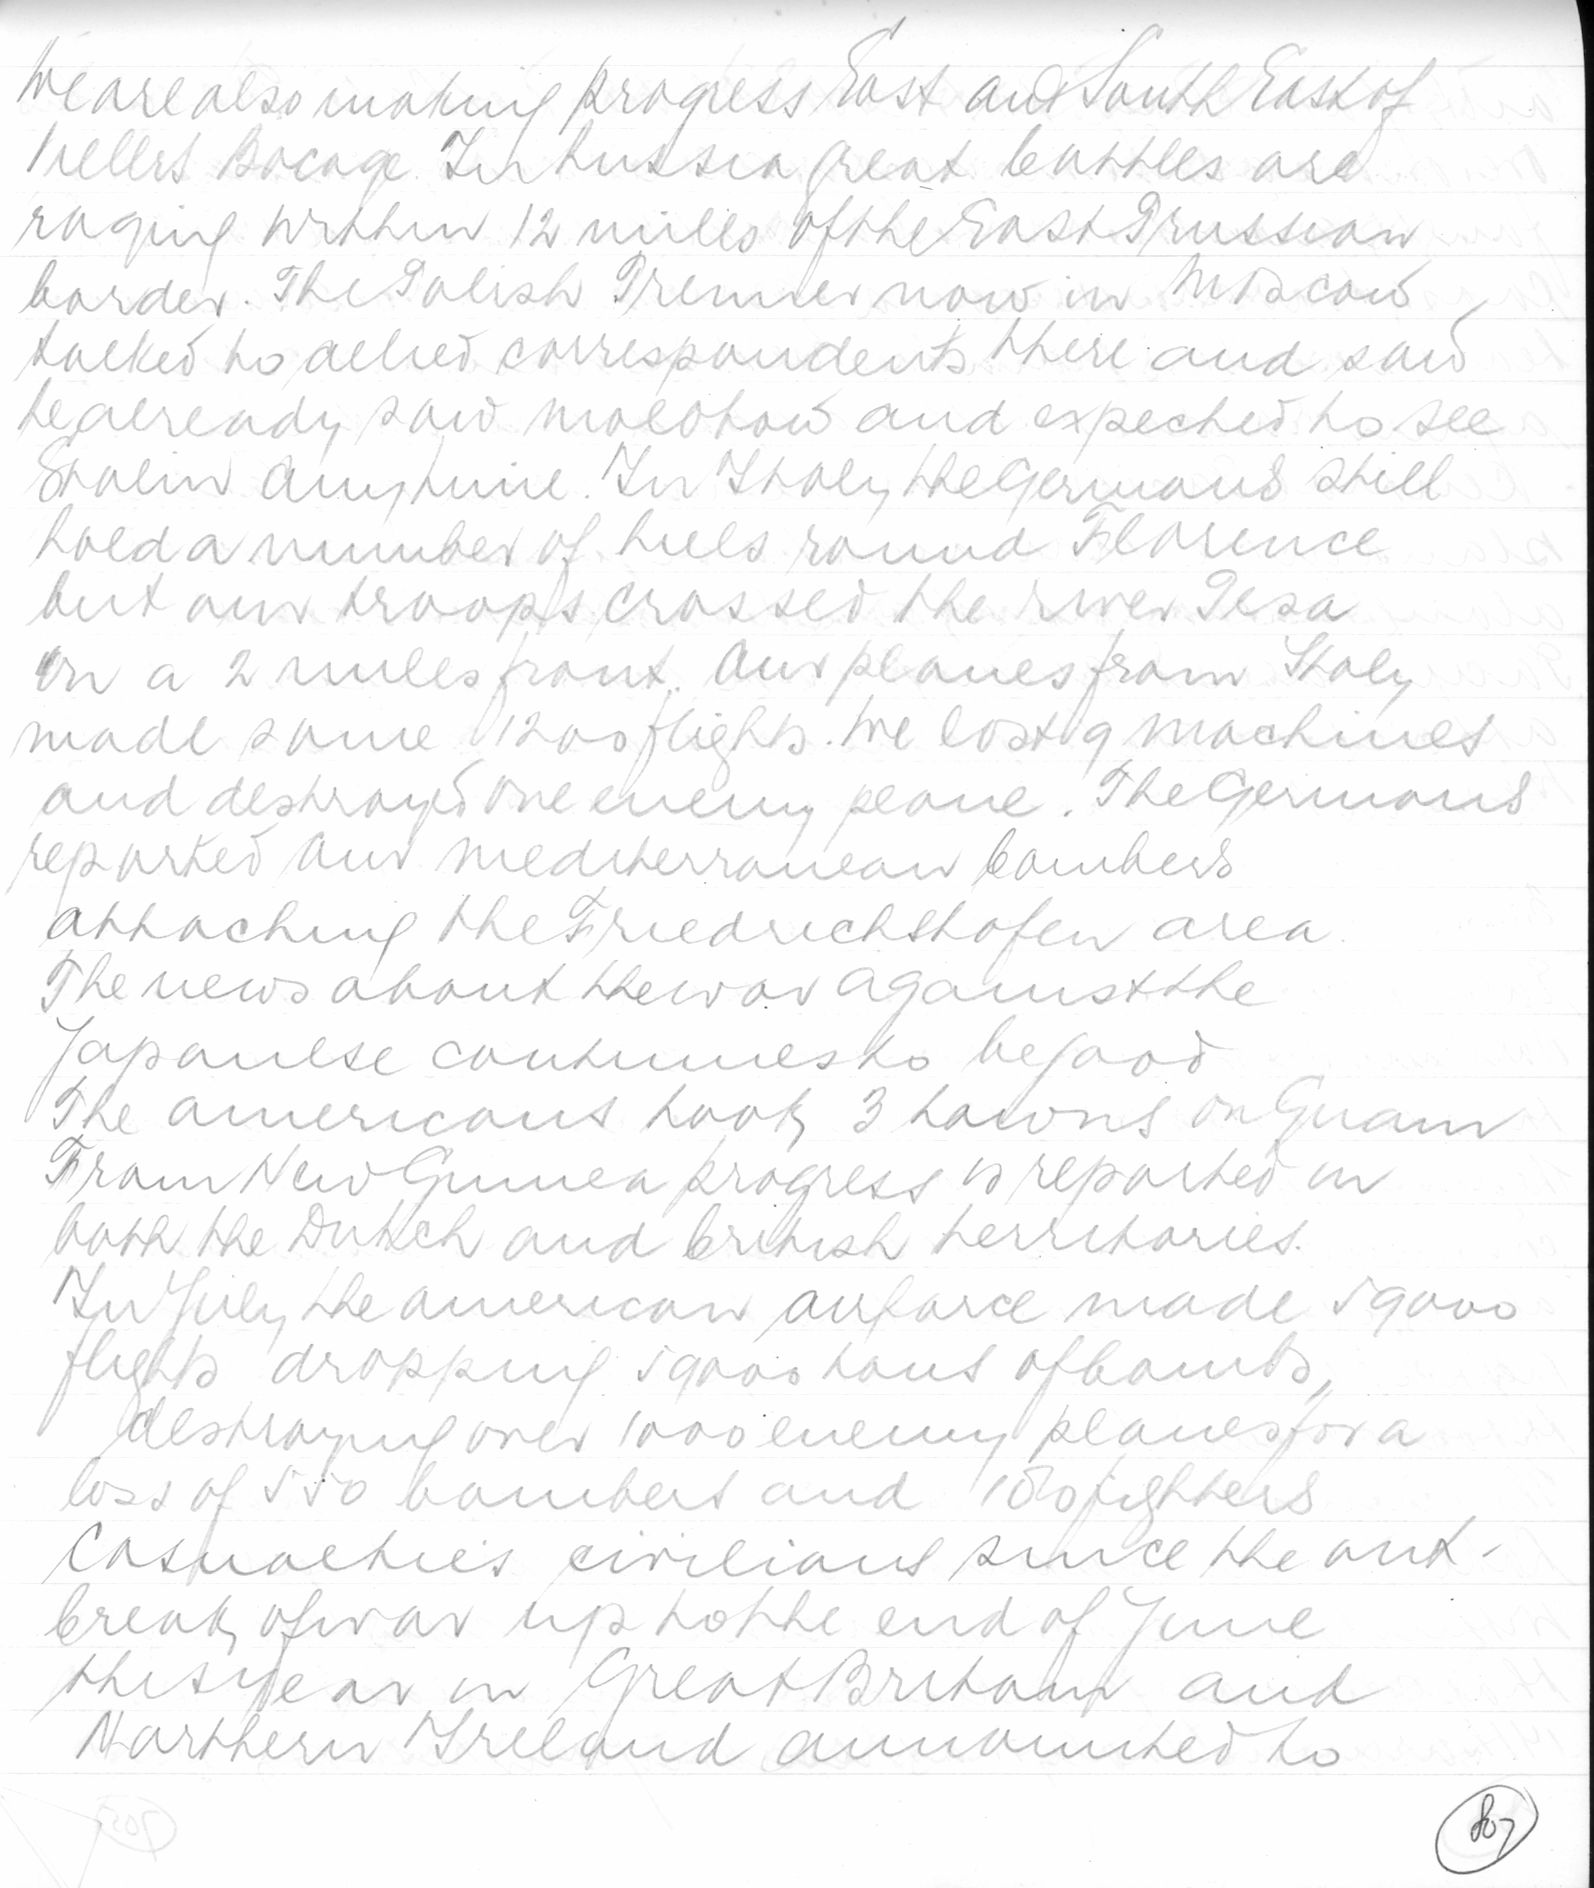 We are also making progress East and South East of
Villers Bocage. In Russia great battles are
raging within 12 miles of the East Prussian
border. The Polish Premier now in Moscow
talked to allied correspondents there and said
he already saw Molotow and expected to see
Stalin anytime. In Italy the Germans still
hold a number of hills round Florence
but our troops crossed the river Pesa
on a 2 miles front. Our planes from Italy
made some 1200 flights. We lost 9 machines
and destroyed one enemy plane. The Germans
reported our mediterranean bombers
attacking the Friedrichshafen area.
The news about the war against the
Japanese continues to be good
The americans took 3 towns on Guam
From New Guinea progress is reported in
both the Dutch and british territories.
In July the american airforce made 59000
flights dropping 59000 tons of bombs,
destroying over 1000 enemy planes for a
loss of 550 bombers and fighters
Casualties civilians since the out-
break of war up to the end of June
this year in Great Britain and
Northern Ireland amounted to
807